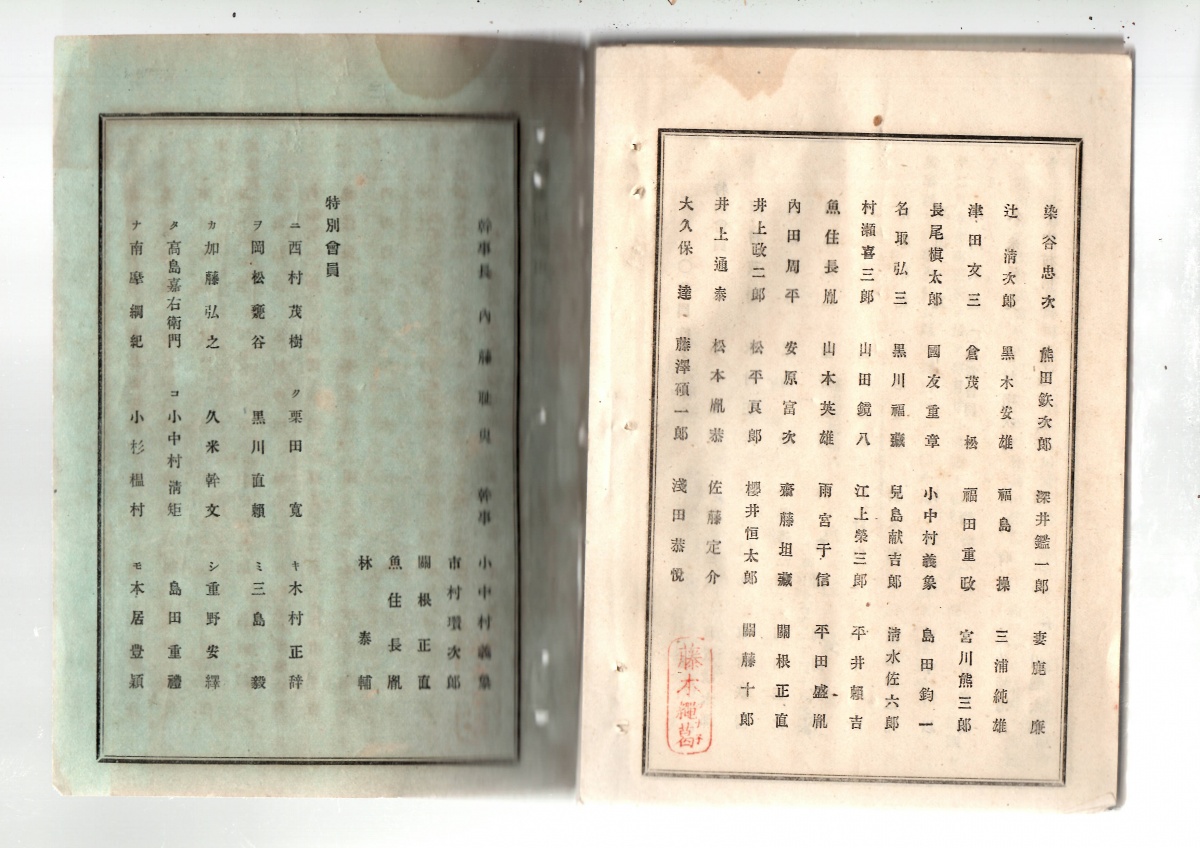 染谷忠次 熊田鉄次郎 深井鑑一郎 妻鹿廉
辻清次郎 黒木安雄 福島操 三浦純雄
津田文三 倉茂松 福田重政 宮川熊三郎
長尾槇太郎 國友重章 小中村義象 島田鈞一
名取弘三 黒川福蔵 兒島献吉郎 清水佐六郎
村瀬喜三郎 山田鏡八 江上榮三郎 平井頼吉
魚住長胤 山本英雄 雨宮于信 平田盛胤
內田周平 安原富次 齋藤坦藏 關根正直
井上政二郎 松平直郎 櫻井恒太郎 關藤十郎
井上通泰 松本胤恭 佐藤定介
大久保達 藤澤碩一郎 淺田恭悅
藤木 葛
幹事長 內藤耻叟 幹事 小中村義象
市村瓚次郎
關根正直
魚住長胤
林泰輔
特別會員
ニ 西村茂樹 ク 栗田寛 キ 木村正辞
ヲ 岡松甕谷 黒川直賴 ミ 三島毅
カ 加藤弘之 久米幹文 シ 重野安繹
タ 高島嘉右衛門 コ 小中村清矩 島田重禮
ナ 南摩綱紀 小杉榲村 モ 本居豊穎